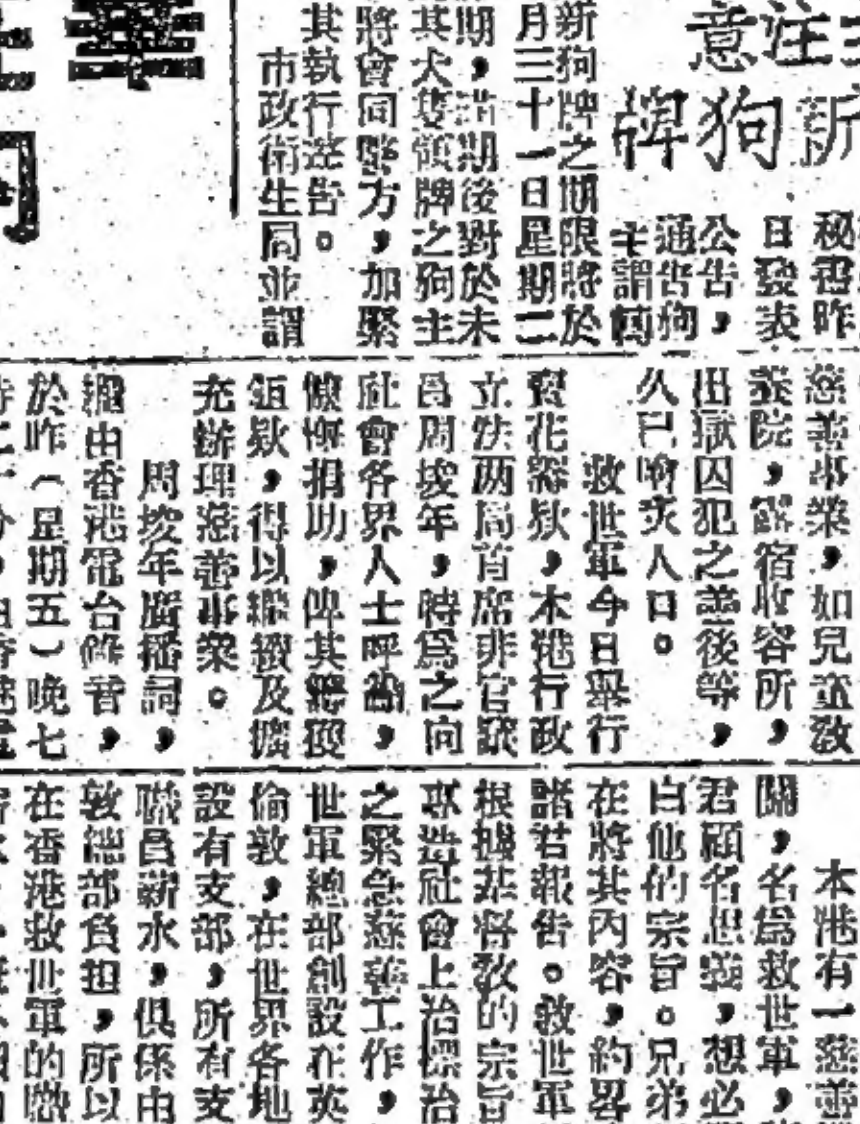 注意
狗牌
秘書昨
日發表
公告，
通告狗
主謂
新狗牌之期限將於
月三十一日星期二
期，期後對於未
其犬隻領牌之狗主
將會同警方，加緊
其執行
告。
市政衛生局並謂
慈善事業，如兒童教
養院，宿收容所，
出獄囚犯之善後等，
久已膾炙人口。
救世軍今日舉行
賣花籌款，本港行政
立法兩局首席非官議
員周埈年，特為之向
社會各界人士呼籲，
慷慨捐助，俾其獲
鉅款，得以繼續及擴
充辦理慈善事業。
周埈年廣播詞，
由香港電台錄音，
於昨（星期五）晚七
本港有一慈善
關，名為救世軍，
君顧名思義，想必
白他的宗旨。兄弟
在將其內容，約畧
諸君報告。救世軍
根據基督教的宗旨
專造社會上治標治
之緊急慈善工作，
世軍總部創設在英
倫敦，在世界各地
設有支部，所有支
職員薪水，俱係由
敦總部負担，所以
在香港救世軍的